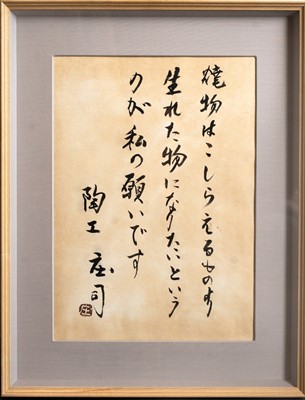 焼物はこしらえるものより
生れた物になりたいという
のが私の願いです
陶工 庄司
庄